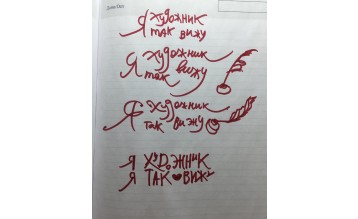 Я художник
так вижу
Я художник
так вижу
Я художник
так вижу
Я ХУДОЖНИК
Я ТАК ВИЖУ